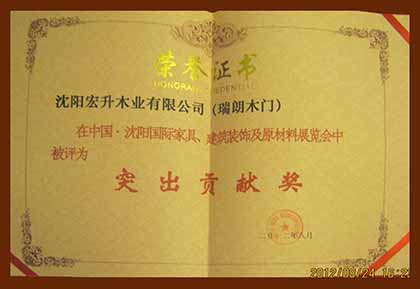 荣誉证书
HONORARY CREDENTIAL
沈阳宏升木业有限公司（瑞朗木门）
在中国·沈阳国际家具、建筑装饰及原材料展览会中
被评为
突出贡献奖
二〇一二年八月